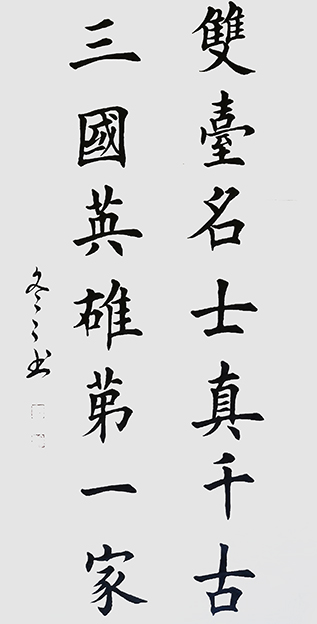 雙臺名士真千古
三國英雄苐一家
冬之书